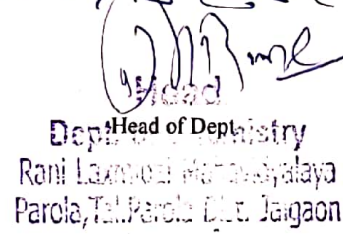 Head
Head of Dept.
Dept. of Chemistry
Rani Laxmibai Mahavidyalaya
Parola, Tal.Parola Dist. Jalgaon